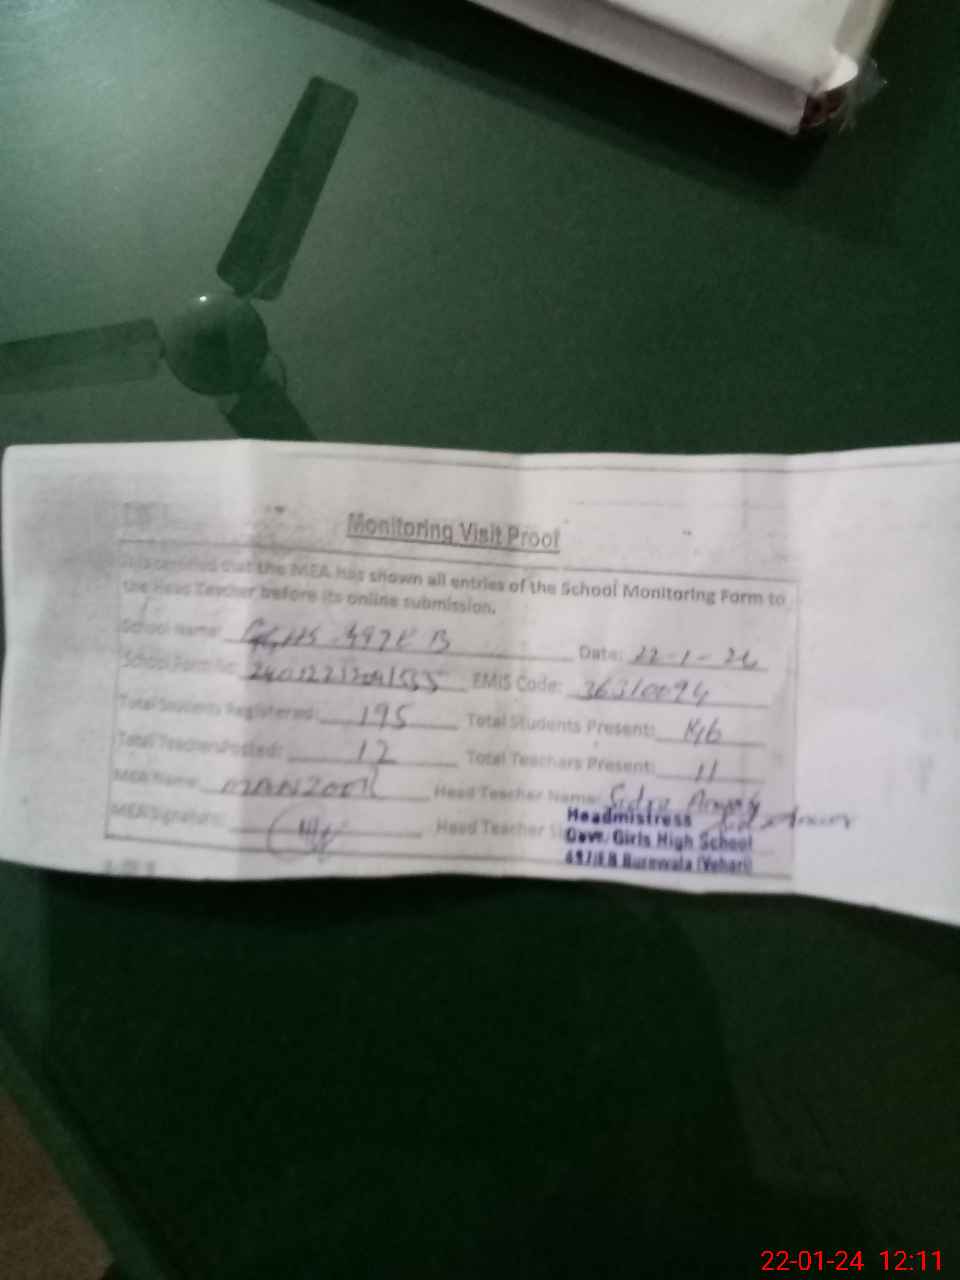 Monitoring Visit Proof
It is certified that the MEA has shown all entries of the School Monitoring Form to
the Head Teacher before its online submission.
School Name: GGHS 497 E B Date: 22-1-24
School Form No: EMIS Code: 36310094
Total Students Registered: 195 Total Students Present:
Total Teachers Posted: 12 Total Teachers Present: 11
MEA Name: MANZOOR Head Teacher Name: Sidra
MEA Signature: Head Teacher
Headmistress
Govt. Girls High School
497/E.B Burewala (Vehari)
22-01-24 12:11